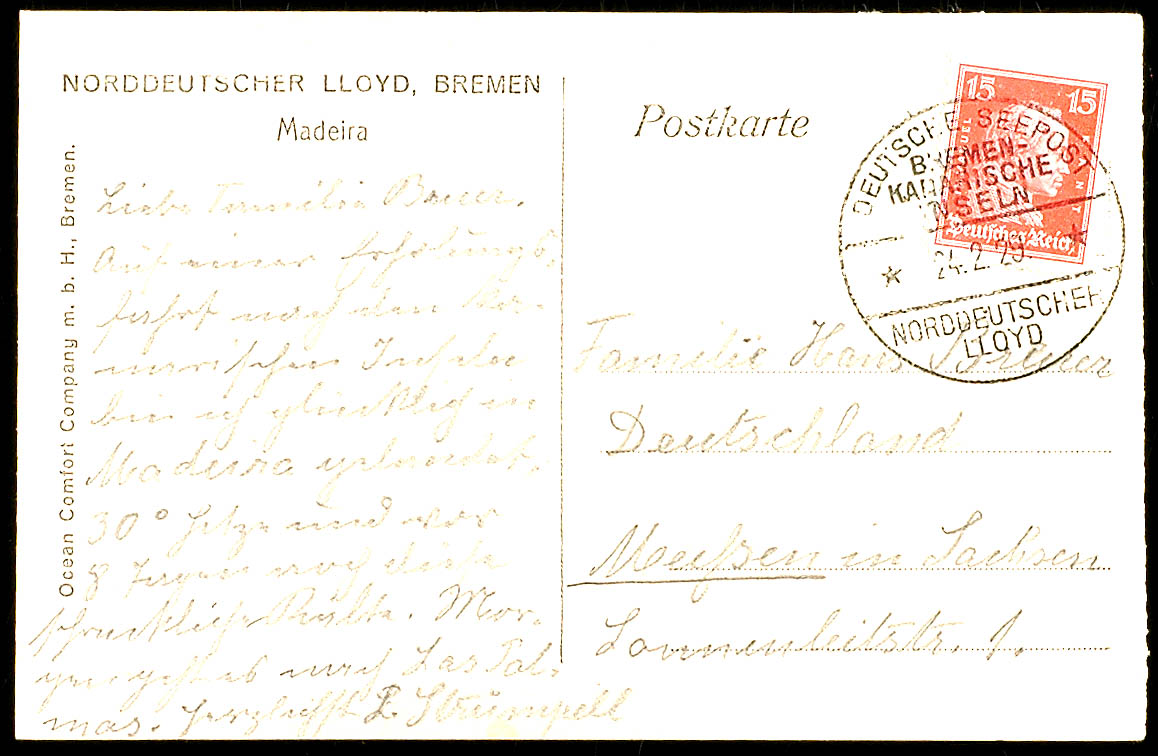 NORDDEUTSCHER LLOYD, BREMEN
Madeira
Ocean Comfort Company m. b. H., Bremen.
Liebe Familie
Auf einer Erholungs-
fahrt nach den Ka-
narischen Inseln
bin ich glücklich in
Madeira gelandet.
30° Hitze und vor
8 Tagen noch diese
schreckliche Kälte. Mor-
gen geht es nach Las Pal-
mas. Herzlichst
Postkarte
15 15
Deutsches Reich
DEUTSCHE SEEPOST
BREMEN-
KANARISCHE
INSELN
24.2.29.
NORDDEUTSCHER
LLOYD
Familie Hans
Deutschland
Meißen in Sachsen
1.